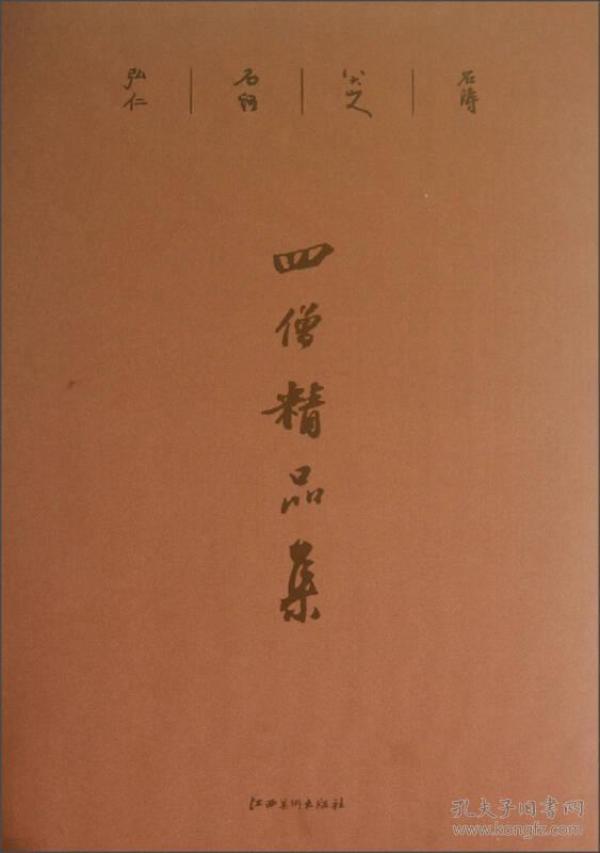 弘仁
石谿
八大山人
石涛
四僧精品集
江西美术出版社
孔夫子旧书网
www.kongfz.com